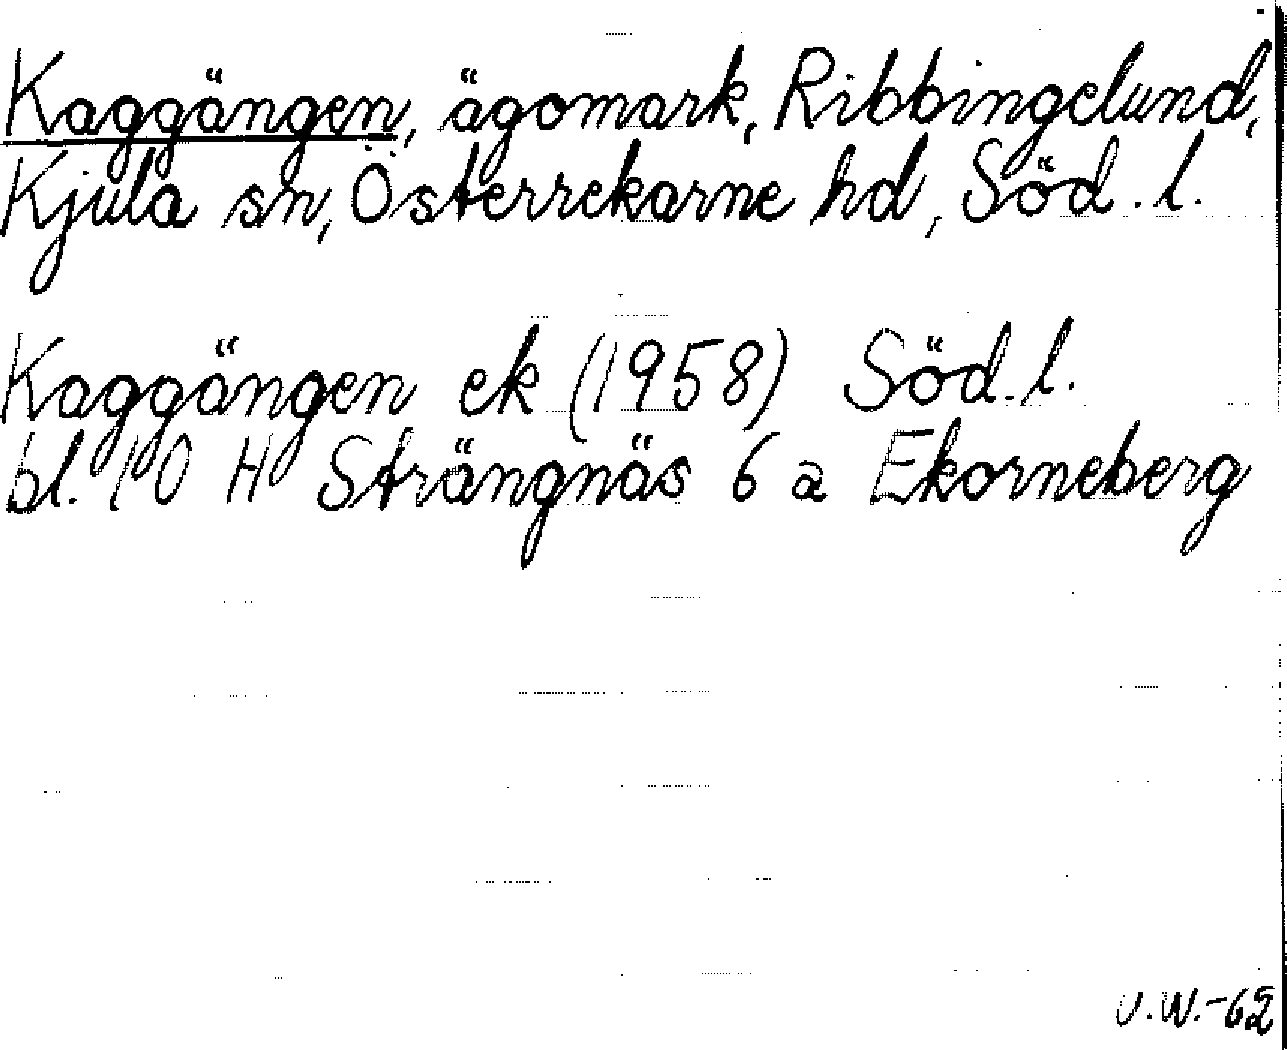 Kaggängen, ägomark, Ribbingelund,
Kjula sn, Österrekarne hd, Söd. l.
Kaggängen ek (1958) Söd. l.
bl. 10 H Strängnäs 6 a Ekorneberg
U.W.-62